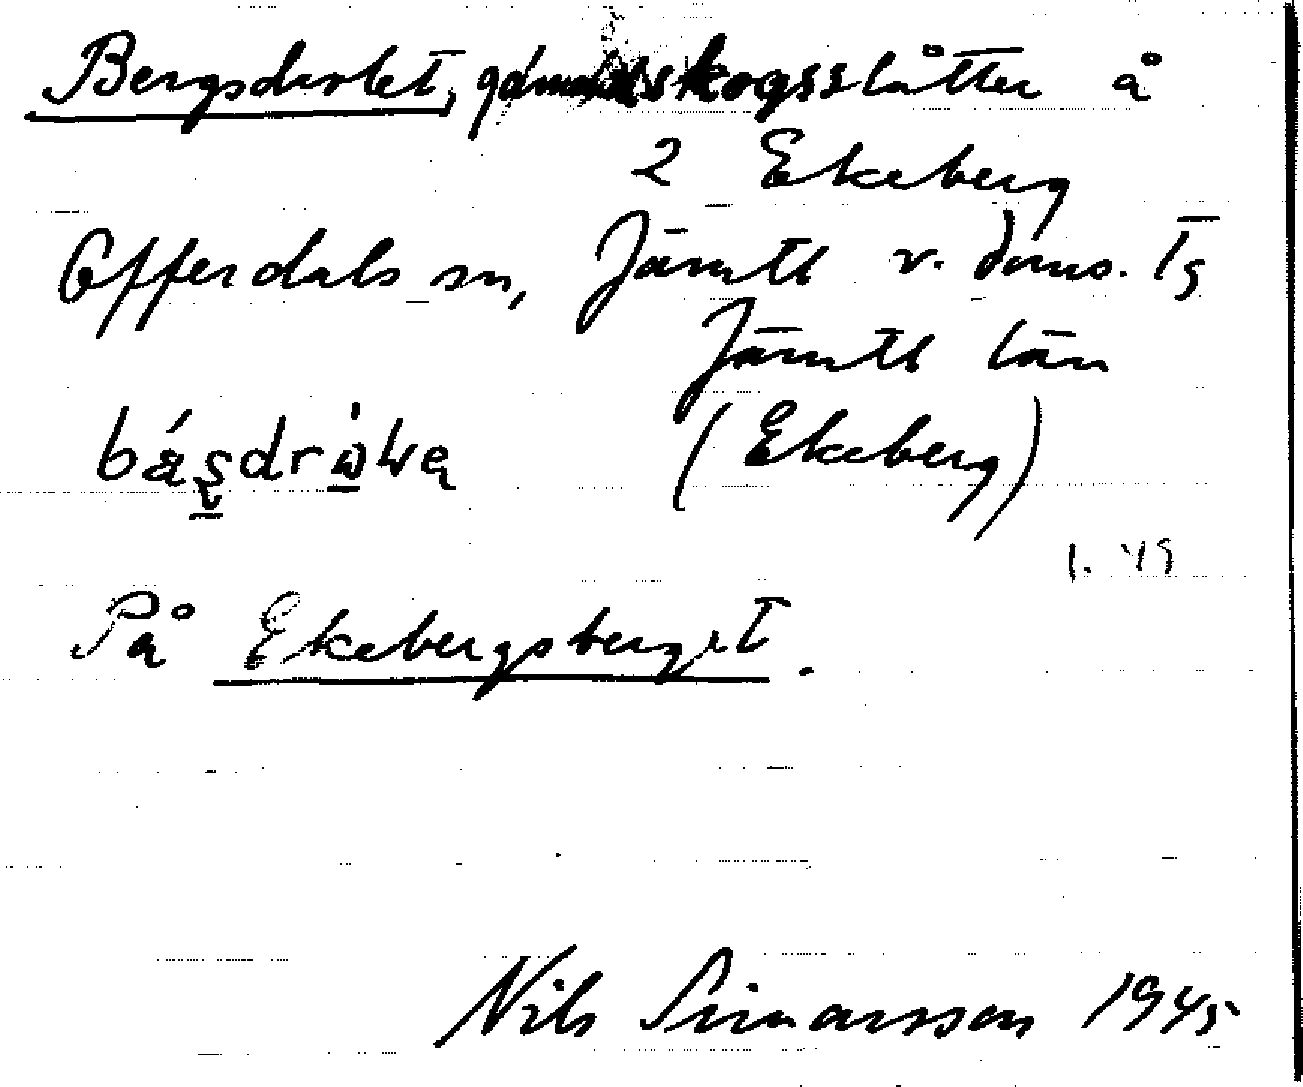 Bergsdrolet, skogsslåtter å
2 Ekeberg
Offerdals sn, Jämtl v. doms. Tg
Jämtl län
(Ekeberg)
1. 49
På Ekebergsberget.
Nils Simarsson 1945